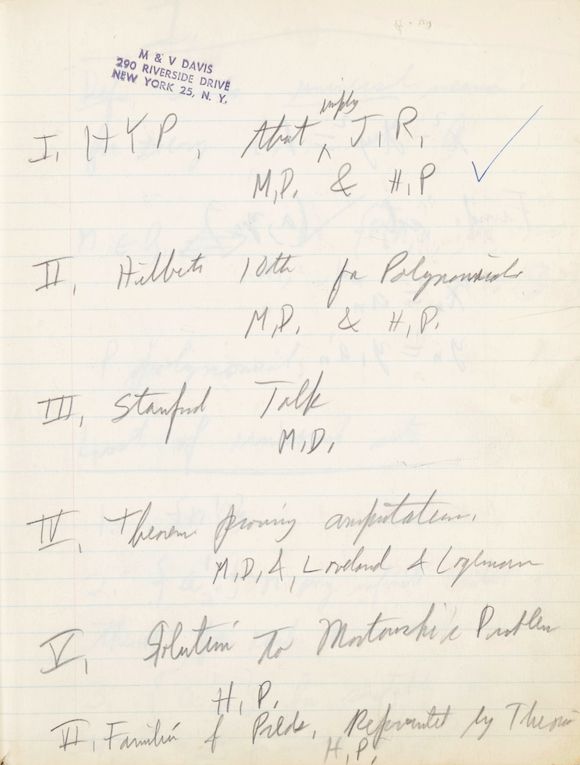 M & V DAVIS
290 RIVERSIDE DRIVE
NEW YORK 25, N. Y.
imply
I, HYP, that ^ J, R,
M,D, & H,P
II, Hilberts 10th for Polynomials
M,D, & H,P,
III, Stanford Talk
M,D,
IV, Theorem proving computation,
M,D,&, Loveland & Logemann
V, Solution to Mostowski's Problem
H,P,
VI, Families of Preds, Represented by Theories
H,P,